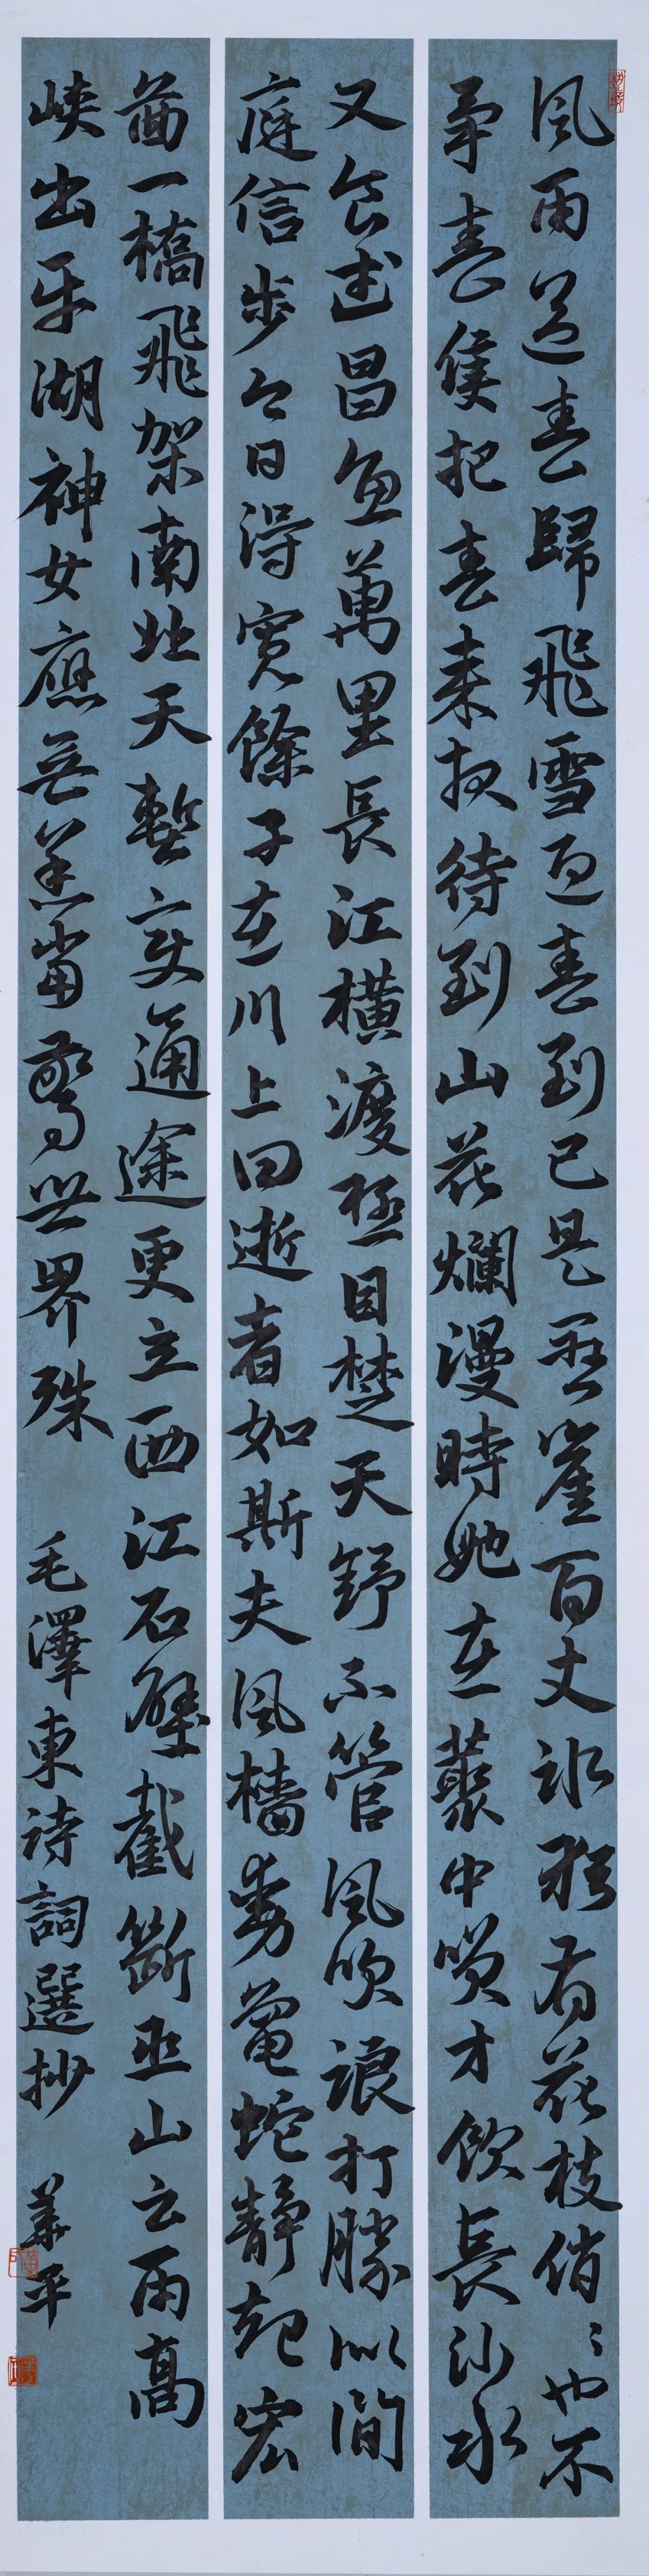 風雨送春歸飛雪迎春到已是懸崖百丈冰猶有花枝俏〻也不
争春隻把春来报待到山花爛漫時她在叢中笑才飲長沙水
又食武昌魚萬里長江横渡極目楚天舒不管風吹浪打勝似閒
庭信步今日得寬餘子在川上曰逝者如斯夫風檣動龜蛇静起宏
啚一橋飛架南北天塹变通途更立西江石壁截斷巫山云雨高
峡出平湖神女應無恙當驚世界殊 毛澤東诗詞選抄 華平